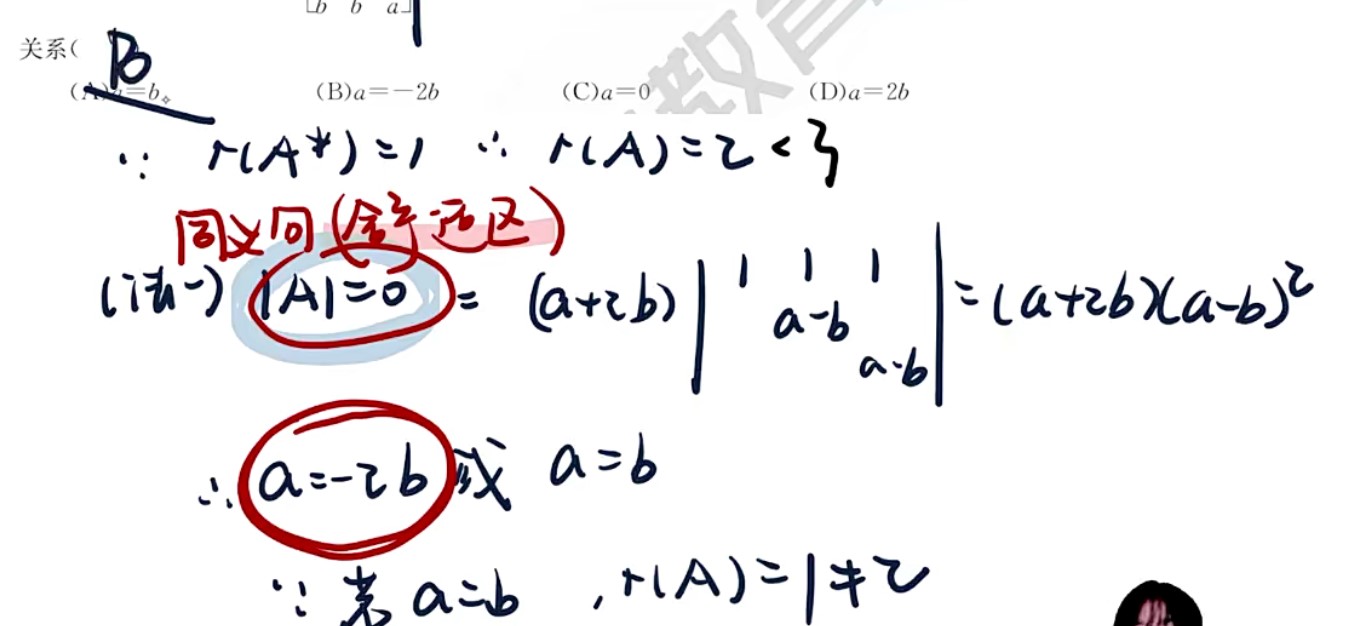 b b a
关系( B
(A)a=b。 (B)a=-2b (C)a=0 (D)a=2b
∵ r(A*)=1 ∴ r(A)=2<3
同义问(舍 选区)
(法一) |A|=0 = (a+2b) | 1 1 1 a-b a-b | =(a+2b)(a-b)²
∴ a=-2b 或 a=b
∵ 若 a=b , r(A)=1≠2
教育